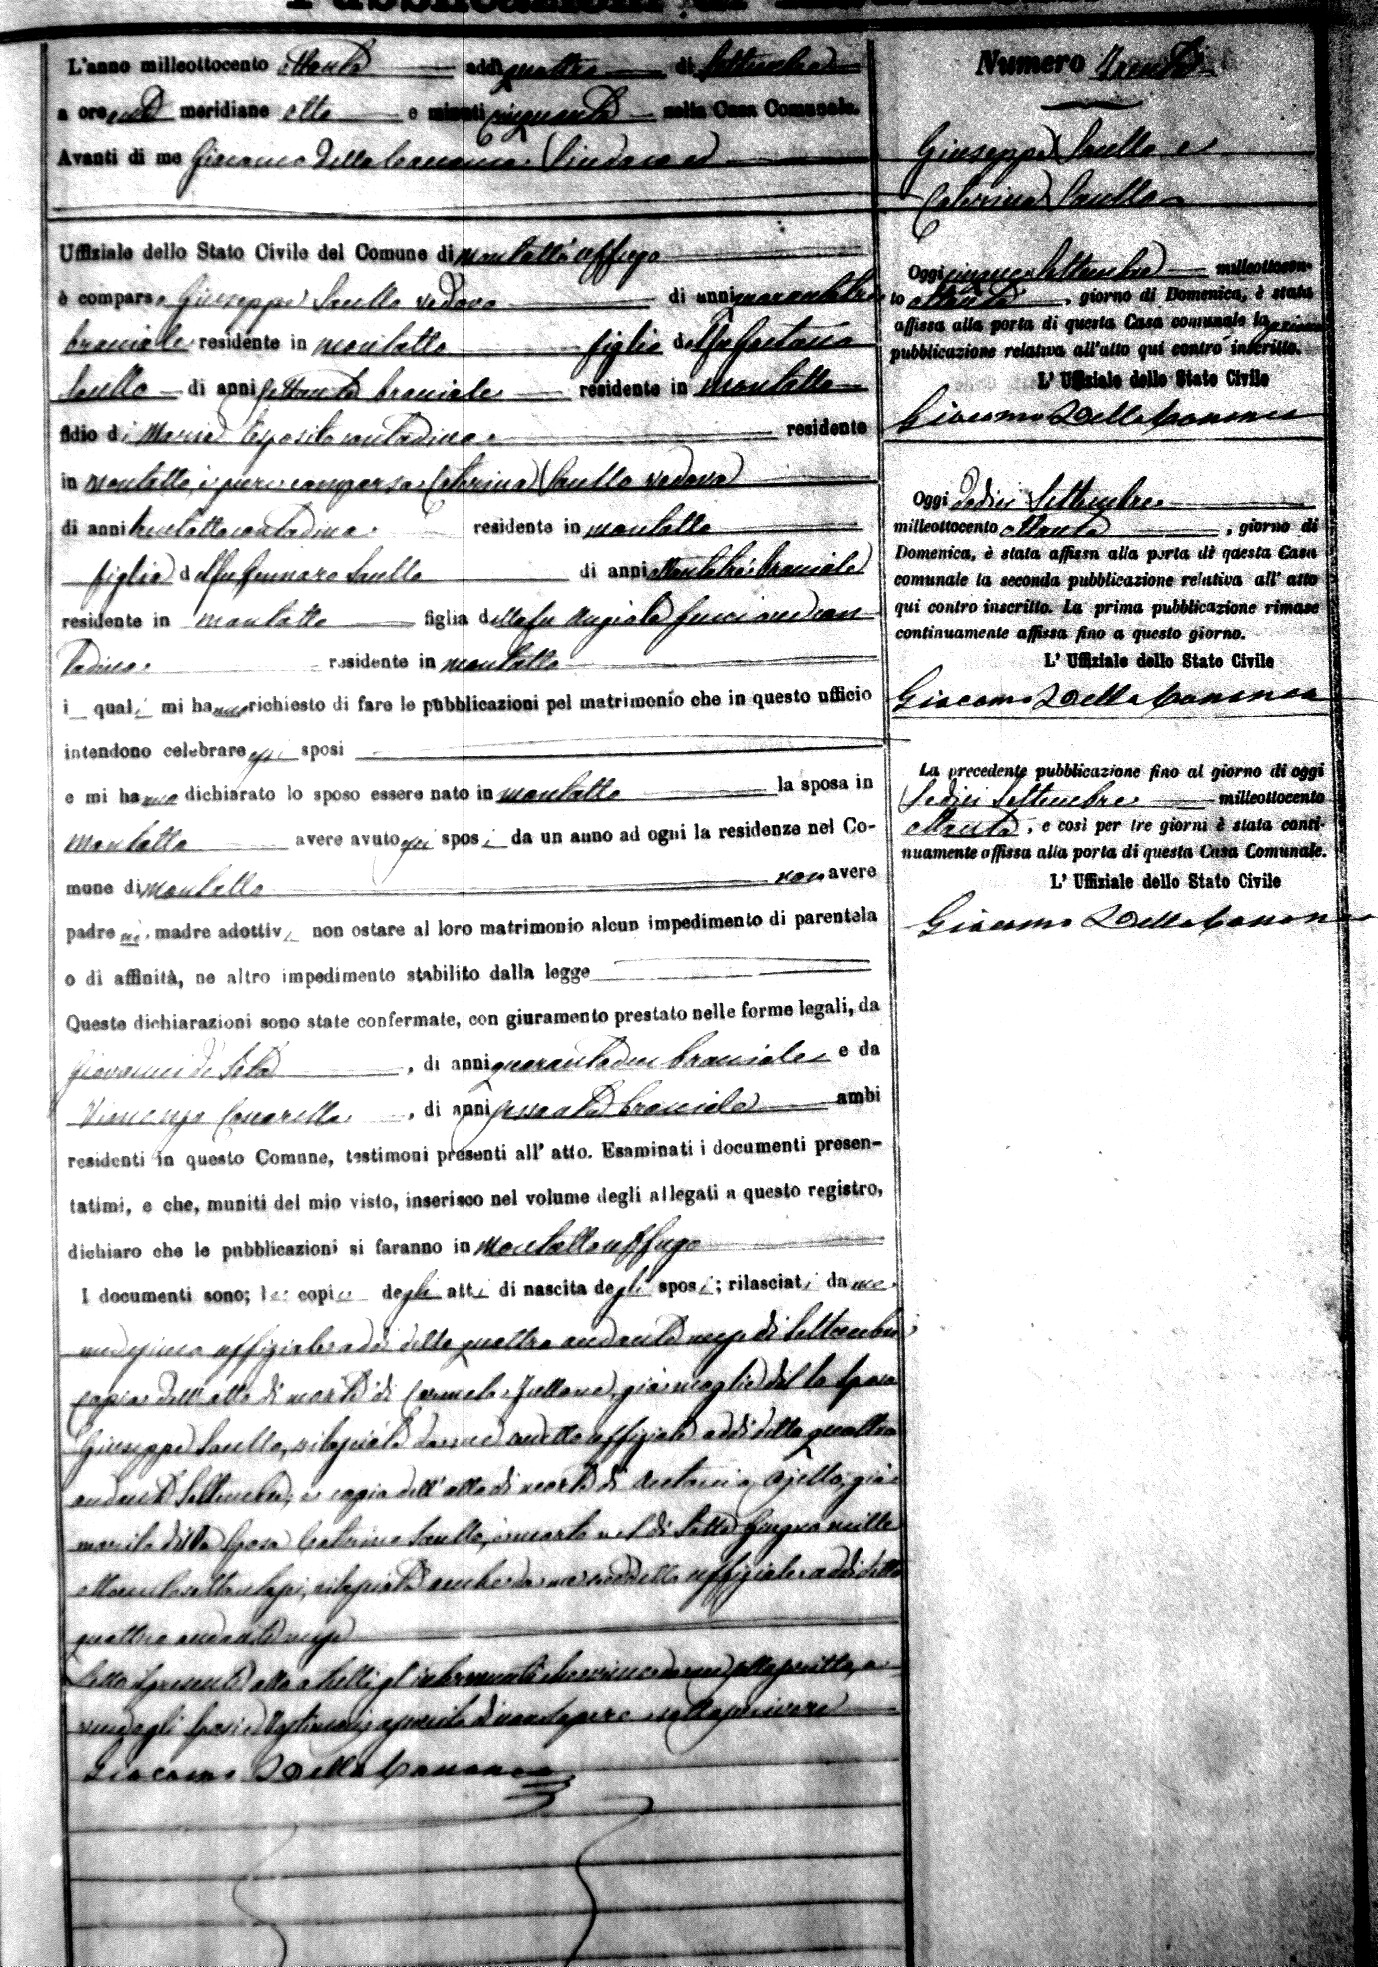 Pubblicazioni di Matrimonio
L'anno milleottocento ottanta addì quattro di Settembre
a ore anti meridiane otto e minuti cinquanta nella Casa Comunale.
Avanti di me Giacomo Della Cananea Sindaco ed
Uffiziale dello Stato Civile del Comune di Montalto Uffugo
è comparso Giuseppe Saullo vedovo di anni quarantatre
bracciale residente in Montalto figlio del fu Gaetano
Saullo di anni settanta bracciale residente in Montalto
e di Maria Esposito contadina residente
in Montalto, e pure comparsa Caterina Saullo vedova
di anni contadina residente in Montalto
figlia del fu Gennaro Saullo di anni ottantatre bracciale
residente in Montalto figlia della fu Angiola con-
tadina residente in Montalto
i quali mi hanno richiesto di fare le pubblicazioni pel matrimonio che in questo ufficio
intendono celebrare essi sposi
e mi hanno dichiarato lo sposo essere nato in Montalto la sposa in
Montalto avere avuto essi sposi da un anno ad ogni la residenze nel Co-
mune di Montalto non avere
padre nè madre adottivi non ostare al loro matrimonio alcun impedimento di parentela
o di affinità, ne altro impedimento stabilito dalla legge
Queste dichiarazioni sono state confermate, con giuramento prestato nelle forme legali, da
Giovanni di Seta, di anni quarantadue bracciale e da
Vincenzo, di anni sessanta bracciale ambi
residenti in questo Comune, testimoni presenti all' atto. Esaminati i documenti presen-
tatimi, e che, muniti del mio visto, inserisco nel volume degli allegati a questo registro,
dichiaro che le pubblicazioni si faranno in Montalto Uffugo
I documenti sono; le copie degli atti di nascita degli sposi; rilasciati da me
medesimo uffiziale addì detto quattro andante mese di Settembre
copia dell'atto di morte di Carmela, già moglie dello sposo
Giuseppe Saullo, rilasciata da me suddetto uffiziale addì detto quattro
andante Settembre; e copia dell'atto di morte di Antonio Ajello, già
marito della sposa Caterina Saullo, morto nel dì sette Giugno mille
ottocentosettantasei, rilasciata anche da me suddetto uffiziale addì detto
quattro andante mese
Letto il presente atto a tutti gl'intervenuti si è da me sottoscritto, a-
vendo gli sposi e testimonj asserito di non sapere sottoscrivere
Giacomo Della Cananea
Numero Trenta
Giuseppe Saullo e
Caterina Saullo
Oggi cinque Settembre milleottocen-
to ottanta, giorno di Domenica, è stata
affissa alla porta di questa Casa comunale la prima
pubblicazione relativa all'atto qui contro inscritto.
L' Uffiziale dello Stato Civile
Giacomo Della Cananea
Oggi dodici Settembre
milleottocento ottanta, giorno di
Domenica, è stata affissa alla porta di questa Casa
comunale la seconda pubblicazione relativa all' atto
qui contro inscritto. La prima pubblicazione rimase
continuamente affissa fino a questo giorno.
L' Uffiziale dello Stato Civile
Giacomo Della Cananea
La precedente pubblicazione fino al giorno di oggi
Sedici Settembre milleottocento
ottanta, e così per tre giorni è stata conti-
nuamente affissa alla porta di questa Casa Comunale.
L' Uffiziale dello Stato Civile
Giacomo Della Cananea